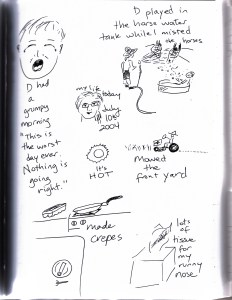 D played in
the horse water
tank while I misted
the horses
D
had
a
grumpy
morning
"This is
the worst
day ever.
Nothing is
going
right."
my life
today
July
10th
2004
It's
HOT
mowed
the
front yard
made
crepes
lots
of
tissue
for
my runny
nose